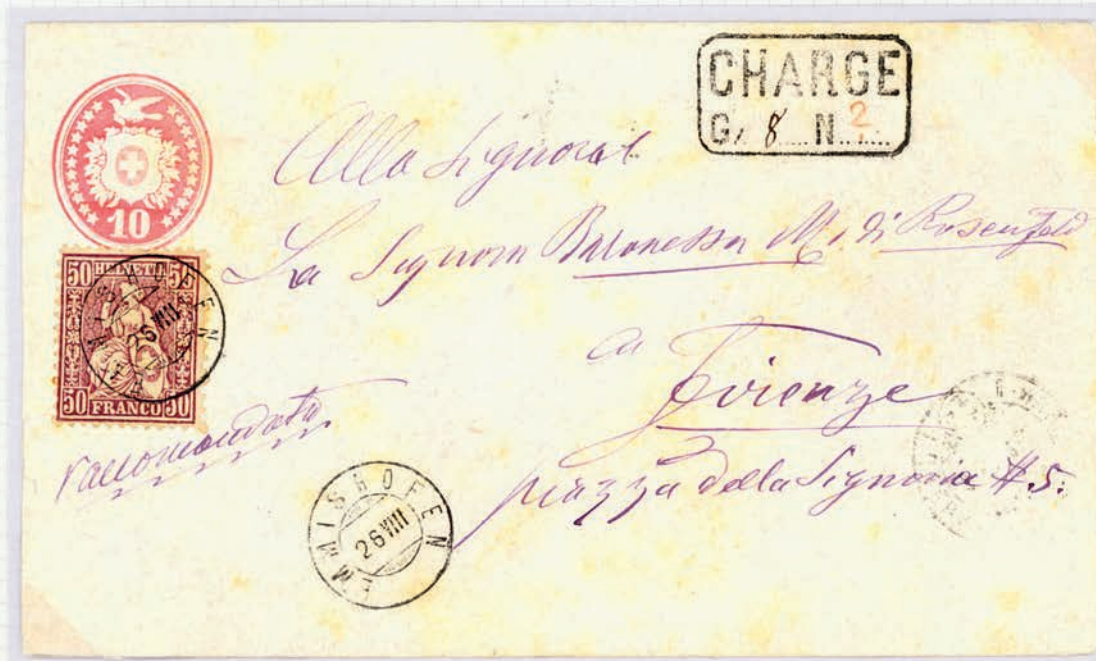 CHARGE
G/. 8 N. 2
10
50 HELVETIA 50
50 FRANCO 50
EMMISHOFEN
26 VIII
Alla Signora
La Signora Baronessa M. di Rosenfeld
a
Firenze
piazza della Signoria # 5.
raccomandata
EMMISHOFEN
26 VIII